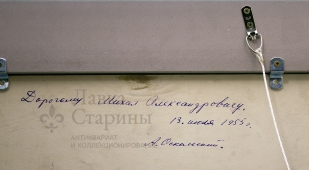 Дорогому Михаил Александровичу.
13. июля 1955 г.
Лавка
Старины
АНТИКВАРИАТ
И КОЛЛЕКЦИОНИРОВАНИЕ